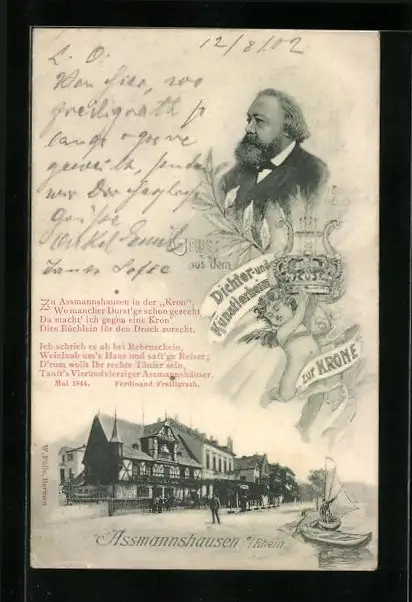 L. O. 12/8/02
Von hier, wo
Freiligrath so
lange u. gerne
geweilt, senden
wir Dir herzlich
Grüße
Onkel
Tante Sofie
Gruss
aus dem
Dichter- und
Künstlerheim
zur KRONE
Zu Assmannshausen in der „Kron",
Wo mancher Durst'ge schon gezecht,
Da macht' ich gegen eine Kron'
Dies Büchlein für den Druck zurecht.
Ich schrieb es ab bei Rebenschein,
Weinlaub um's Haus und saft'ge Reiser;
D'rum wollt Ihr rechte Täufer sein,
Tauft's Vierundvierziger Assmannshäuser.
Mai 1844. Ferdinand Freiligrath.
Assmannshausen a/Rhein